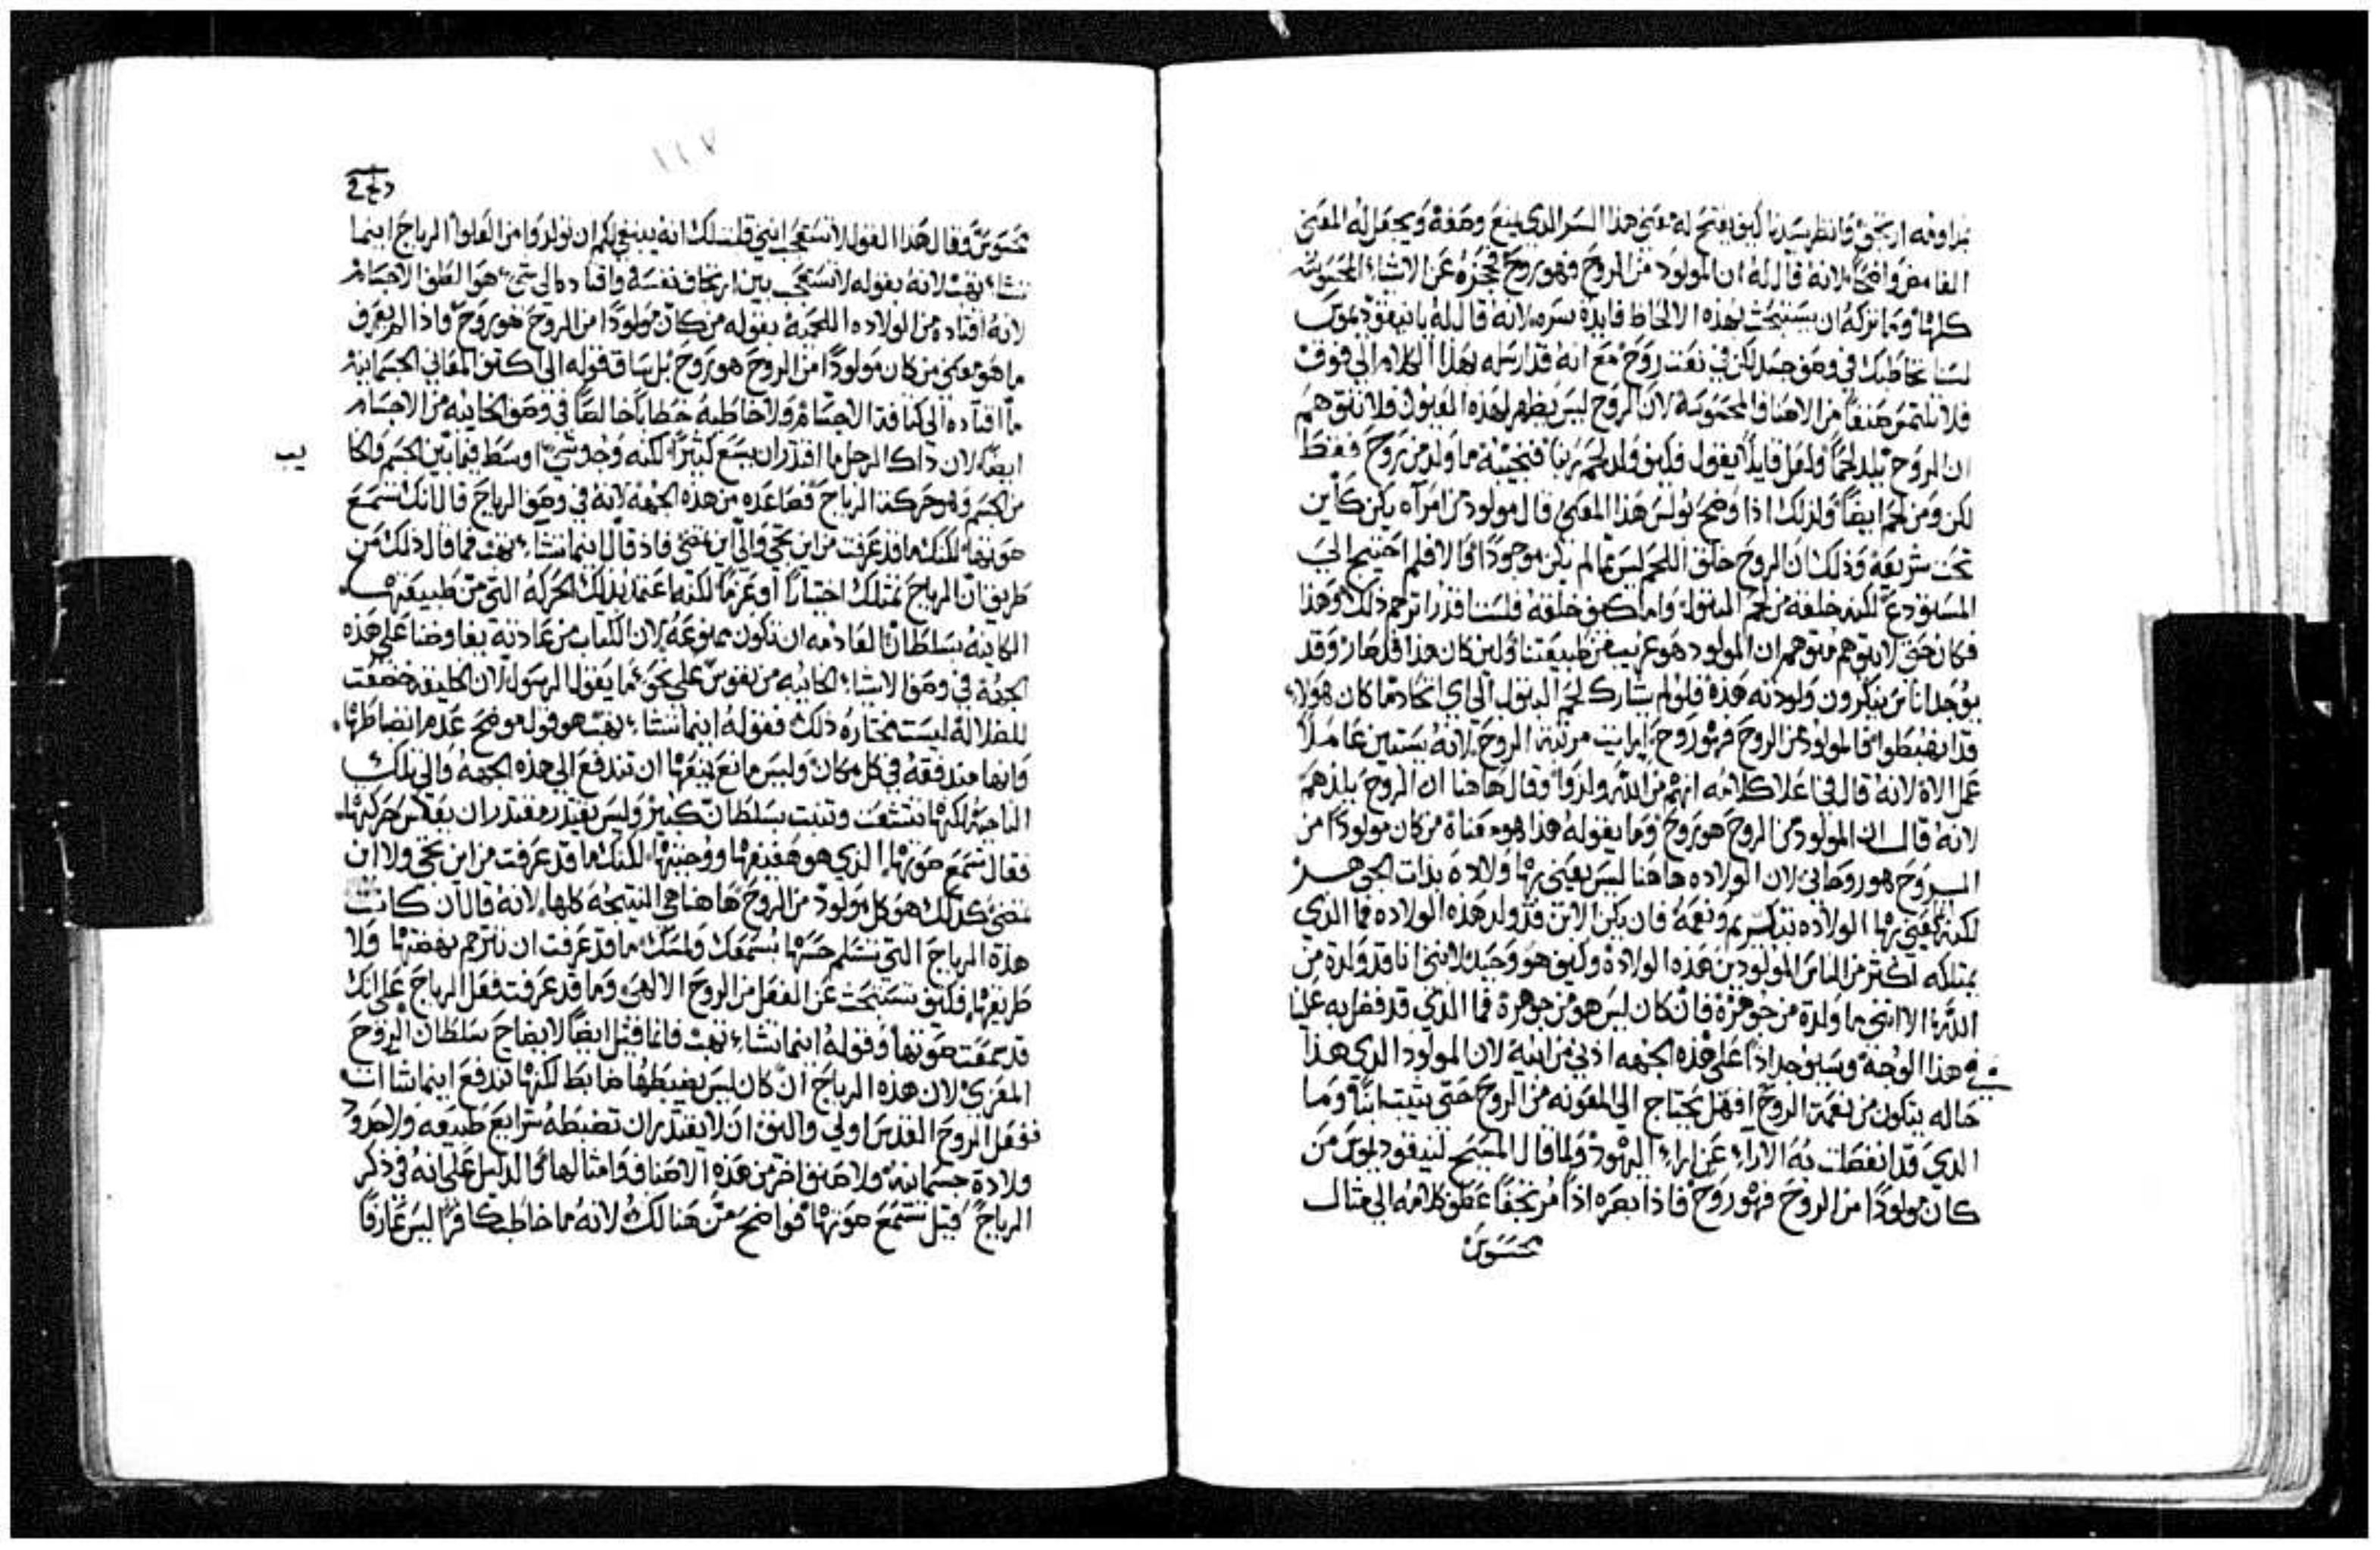 بذاوفه ارتجى وانظر سيدنا كيف يفتح له معنى هذا السر الذي يمنع وصفه ويجعل له المعنى
الغامض واضحًا لانه قال له ان المولود من الروح فهو روح فحجزه عن الاشياء المحسوسه
كلها وما تركه ان يستبحث بهذه الالحاظ فايدة سره لانه قال له يا نيقوديموس
لسنا نخاطبك في وصف جسد لكن في نعت روح مع انه قد ارسله بهذا الكلام الى فوق
فلا تلتمس صنفًا من الاصناف المحسوسه لان الروح ليس يظهر لهذه العيون فلا تتوهم
ان الروح تلد لحمًا ولعل قايلًا يقول فكيف ولد لحم ربنا فنجيبه ما ولد من روح فقط
لكن ومن لحم ايضًا ولذلك اذا وضح بولس هذا المعنى قال مولود من امرآه يكن كاين
تحت شريعة وذلك ان الروح خلق اللحم ليس مما لم يكن موجودًا والا فلم احتيج الى
المستودع لكنه خلقه من لحم البتول واما كيف خلقه فلست اقدر اترجم ذلك وهذا
فكان حتى لا يتوهم متوهم ان المولود هو غريب من طبيعتنا ولين كان هذا قد صار وقد
يوجد اناس ينكرون ولودته هذه فلو لم يشارك لحم البتول الى اي الحاد ما كان هولاء
قد انهبطوا فالمولود من الروح فهو روح ارايت مرتبة الروح لانه يستبين عاملًا
عمل الاه لانه قال في اعلا كلامه انهم من الله ولدوا وقال هاهنا ان الروح يلدهم
لانه قال ان المولود من الروح هو روح وما يقوله هذا هو معناه من كان مولودًا من
الروح هو روحاني لان الولاده هاهنا ليس يعني بها ولادة بذات الجوهر
لكنه يعني بها الولاده بتكريم ونعمة فان يكن الابن قد ولد هذه الولاده فما الذي
يمتلكه اكثر من الناس المولودين هذه الولادة وكيف هو وحيد لانني انا قد ولدة من
الله الا انني ما ولدة من جوهرة فان كان ليس هو من جوهرة فما الذي قد فضل به علينا
في هذا الوجه وسيوجد اذًا على هذه الجهه ادنى من ابيه لان المولود الذي هذا
حاله يتكون من نعمة الروح افهل يحتاج الى المعونه من الروح حتى يثبت ابنًا وما
الذي قد انفصلت به الاراء عن اراء اليهود ولما قال المسيح لنيقوديموس من
كان مولودًا من الروح فهو روح فاذا بصره اذًا مرتجفًا عطف كلامه الى مثال
محسوس
محسوس وقال هذا القول لا تستعجب انني قلت لك انه ينبغي لكم ان تولدوا من العلو الرياح اينما
تشاء تهب لانه بقوله لا تستعجب بين ارتجاف نفسه واقتاده الى شي هو الطف الاجسام
لانه اقتاده من الولاده اللحمية بقوله من كان مولودًا من الروح هو روح واذا لم يعرف
ما هو معنى من كان مولودًا من الروح هو روح بل ساق قوله الى كثف المعاني الجسمانيه
ما اقتاده الى كثافة الاجسام ولا خاطبه خطابًا خالصًا في وصف الخاليه من الاجسام
ايضًا لان ذاك الرجل ما اقتدر ان يسمع كثيرًا لكنه وجد شيًا اوسط فيما بين الجسم والخا
يب
من الجسم وهو حركة الرياح فصاعده من هذه الجهة لانه في وصف الرياح قال انك تسمع
صوتها لكنك ما قد عرفت من اين تجي والى اين تمضي فاذ قال اينما تشاء تهب فما قال ذلك من
طريق ان الرياح تمتلك اختيارًا او عزمًا لكنه ما عنى بذلك الحركة التي من طبيعتها
الكاينه بسلطان العادمه ان تكون ممنوعه لان الكتاب من عادته يفاوضنا على هذه
الجهة في وصف الاشياء الخاليه من نفوس على نحو ما يقول الرسول ان الخليقه خضعت
للضلالة ليست مختاره ذلك فقوله اينما تشاء تهب هو قول موضح عدم انضباطها
وانها مندفقه في كل مكان وليس مانع يمنعها ان تندفع الى هذه الجهه والى تلك
الناحيه لكنها تتشعب وتثبت بسلطان كبير وليس يقتدر مقتدر ان يعكس حركتها
فقال تسمع صوتها الذي هو صفيفها ووجبتها لكنك ما قد عرفت من اين تجي ولا اين
تمضي كذلك هو كل مولود من الروح هاهنا هي النتيجه كلها لانه قال ان كانت
هذة الرياح التي تتسلم حسها بسمعك ولمسك ما قد عرفت ان تترجم نهضتها ولا
طريقها فكيف تستبحث عن الفعل من الروح الالهي وما قد عرفت فعل الرياح على انك
قد سمعت صوتها وقوله اينما تشاء تهب فانما قيل ايضًا لايضاح سلطان الروح
المعزي لان هذه الرياح ان كان ليس يضبطها ضابط لكنها تندفع اينما شاات
ففعل الروح القدس اولى واليق ان لا يقتدر ان تضبطه شرايع طبيعه ولا حدود
ولادة جسمانية ولا صنف اخر من هذه الاصناف وامثالها والدليل على انه في ذكر
الرياح قيل تسمع صوتها فواضح من هنالك لانه ما خاطب كافرًا ليس عارفًا